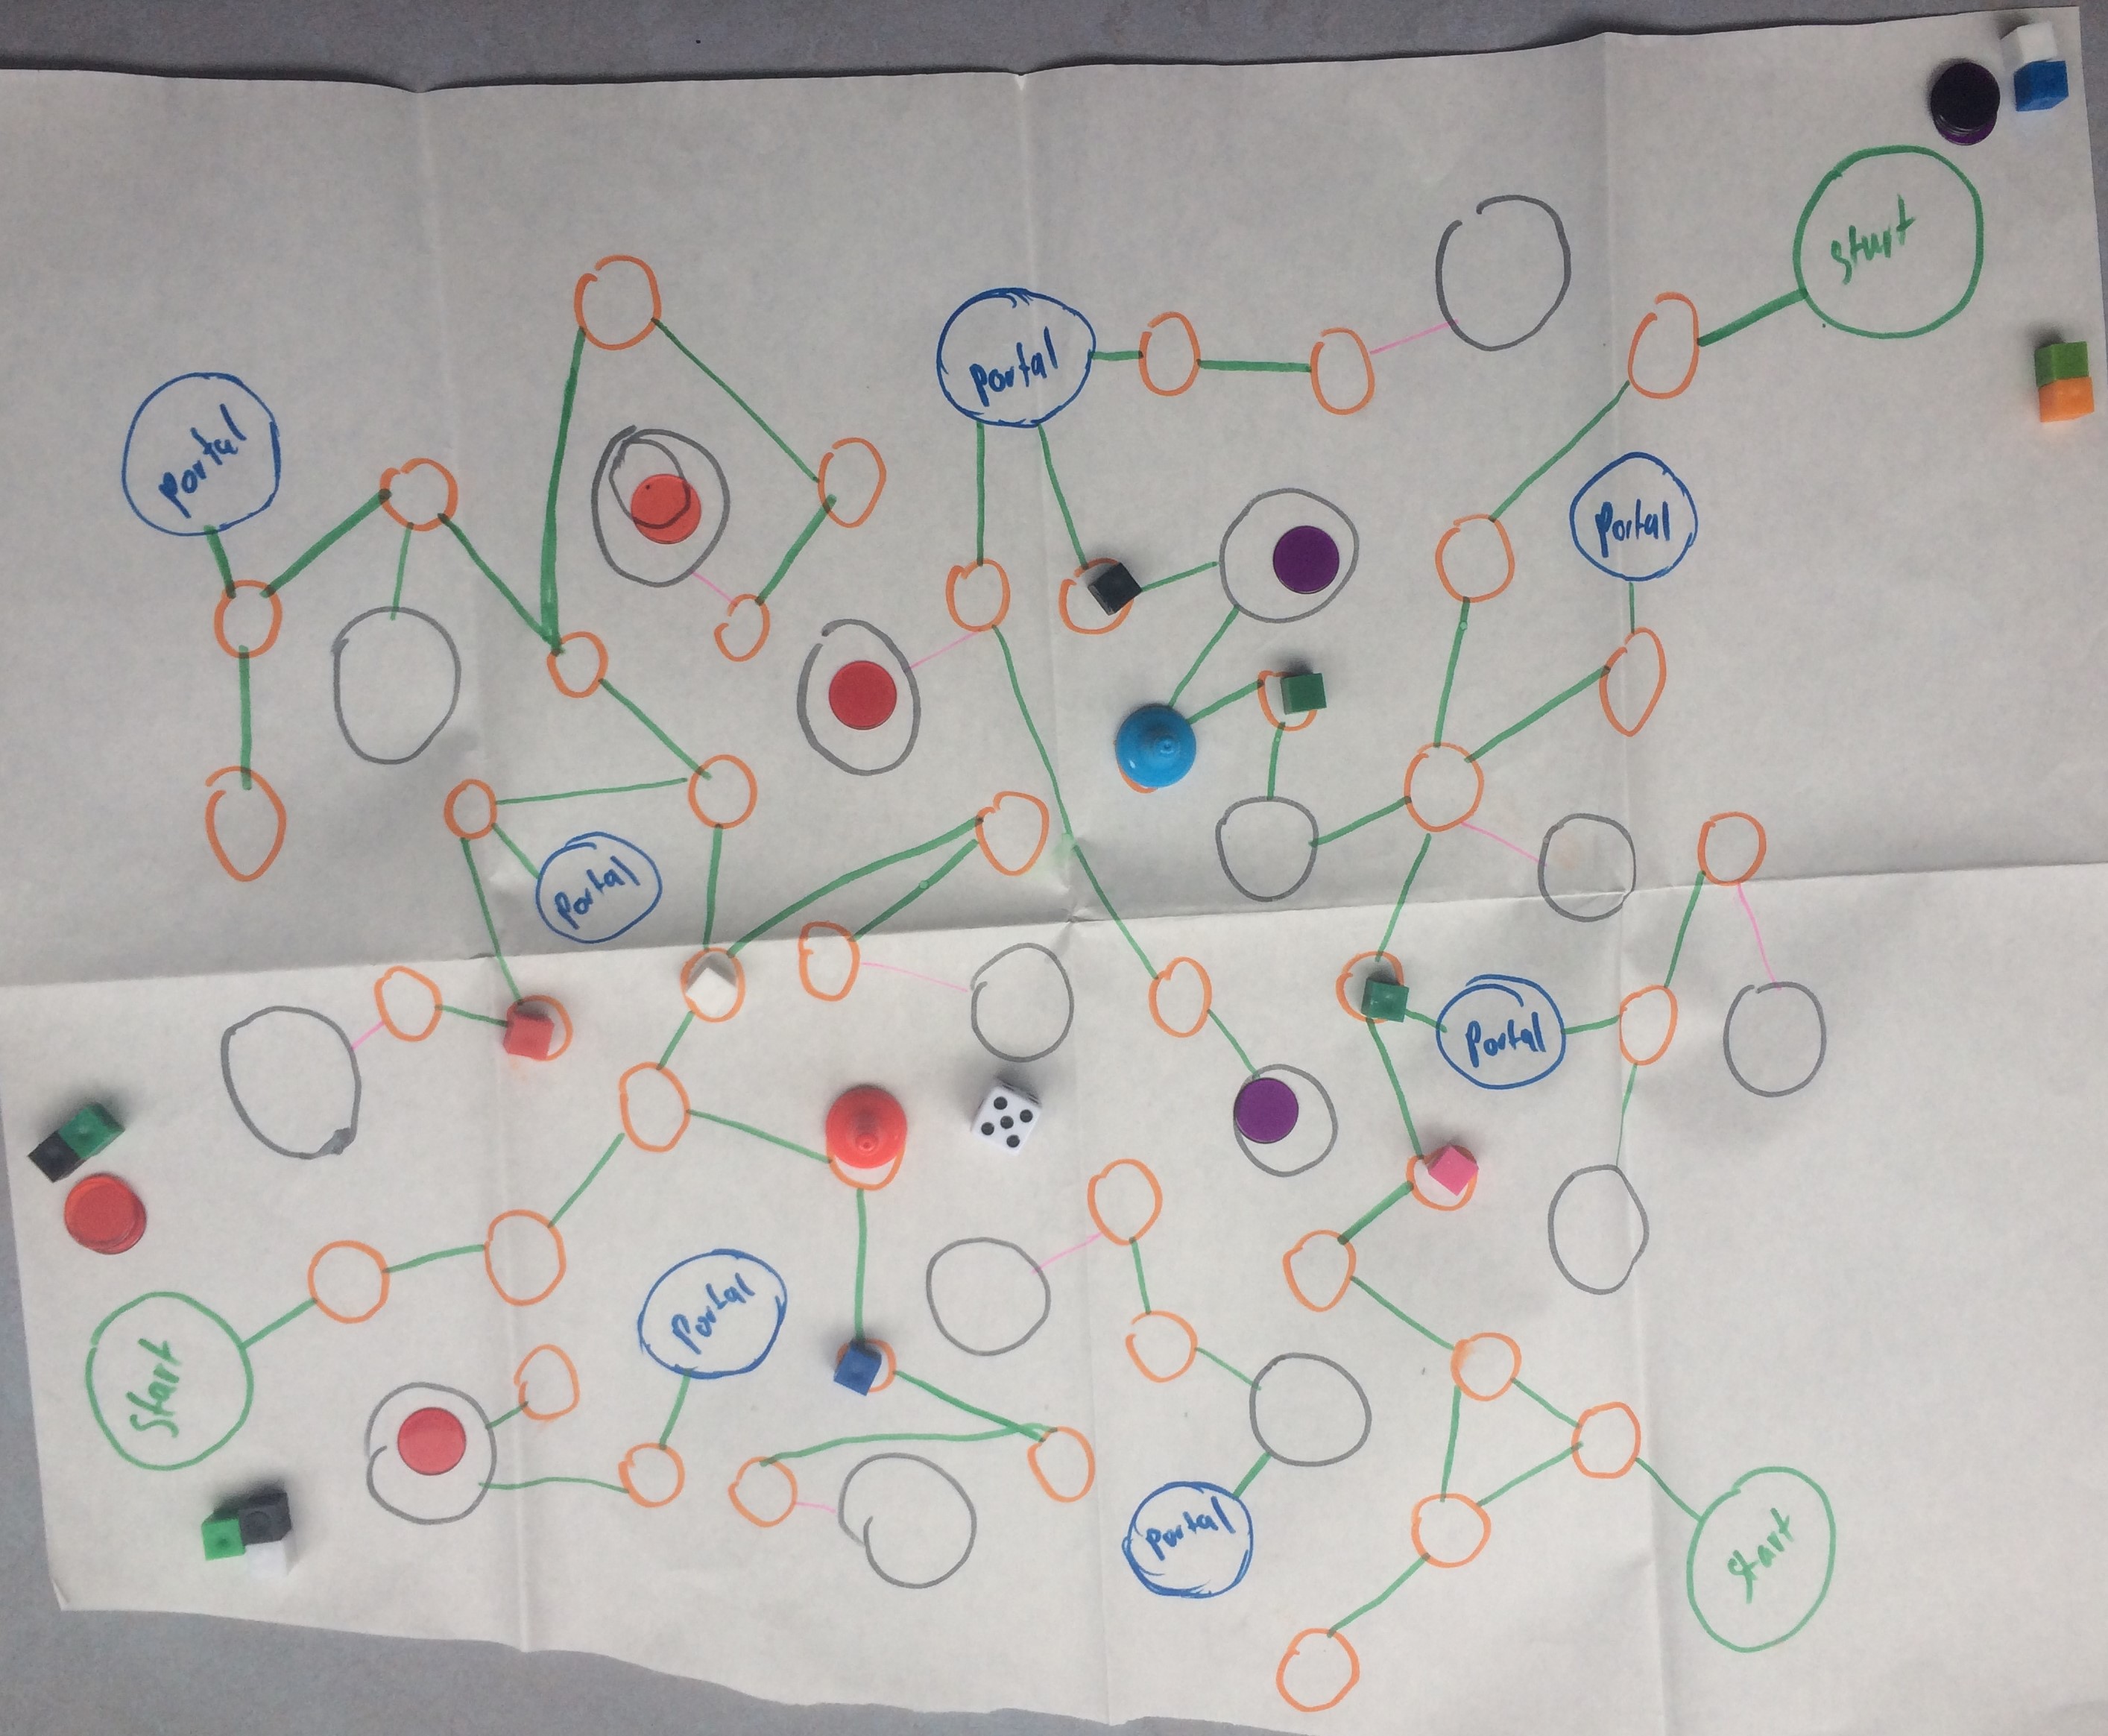 Start
Portal
Portal
Portal
Portal
Portal
Start
Portal
Portal
Start